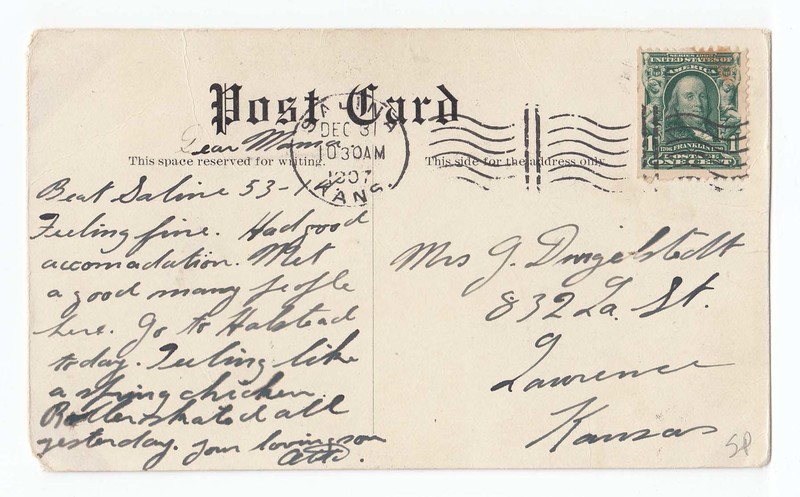 Post Card
SALINA
DEC 31
10 30 AM
1907
KANS.
SERIES 1902
UNITED STATES OF
AMERICA
1 FRANKLIN 1
POSTAGE
ONE CENT
This space reserved for writing.
This side for the address only.
Dear Mama
Beat Saline 53-12
Feeling fine. Had good
accomadation. Met
a good many people
here. Go to Halstead
today. Feeling like
a spring chicken.
Roller skated all
yesterday. Your loving son
Mrs J. Dingelstedt
832 La. St.
Lawrence
Kansas
SP